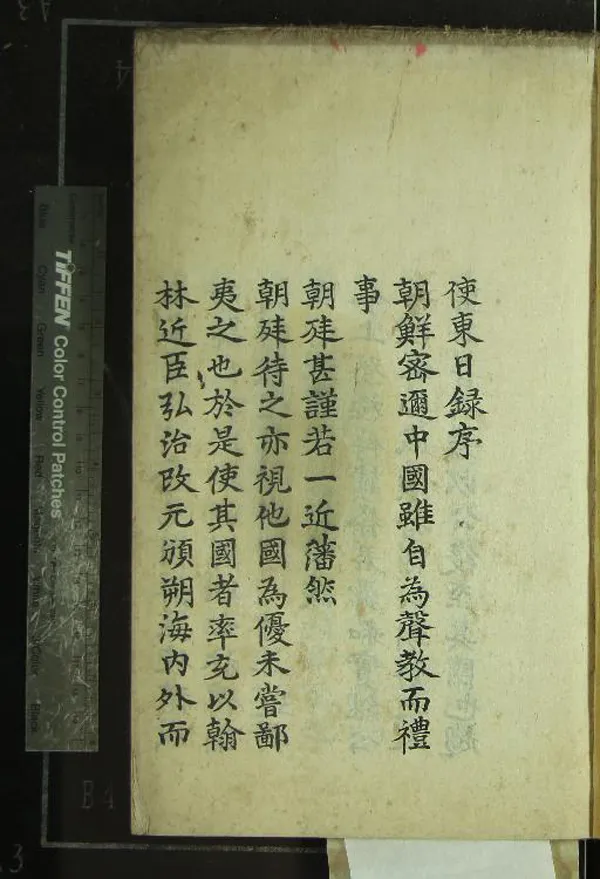 使東日録序
朝鮮密邇中國雖自為聲教而禮
事
朝廷甚謹若一近藩然
朝廷待之亦視他國為優未嘗鄙
夷之也於是使其國者率充以翰
林近臣弘治改元頒朔海内外而
TIFFEN Color Control Patches
Cyan
Green
Yellow
Red
Black
B4